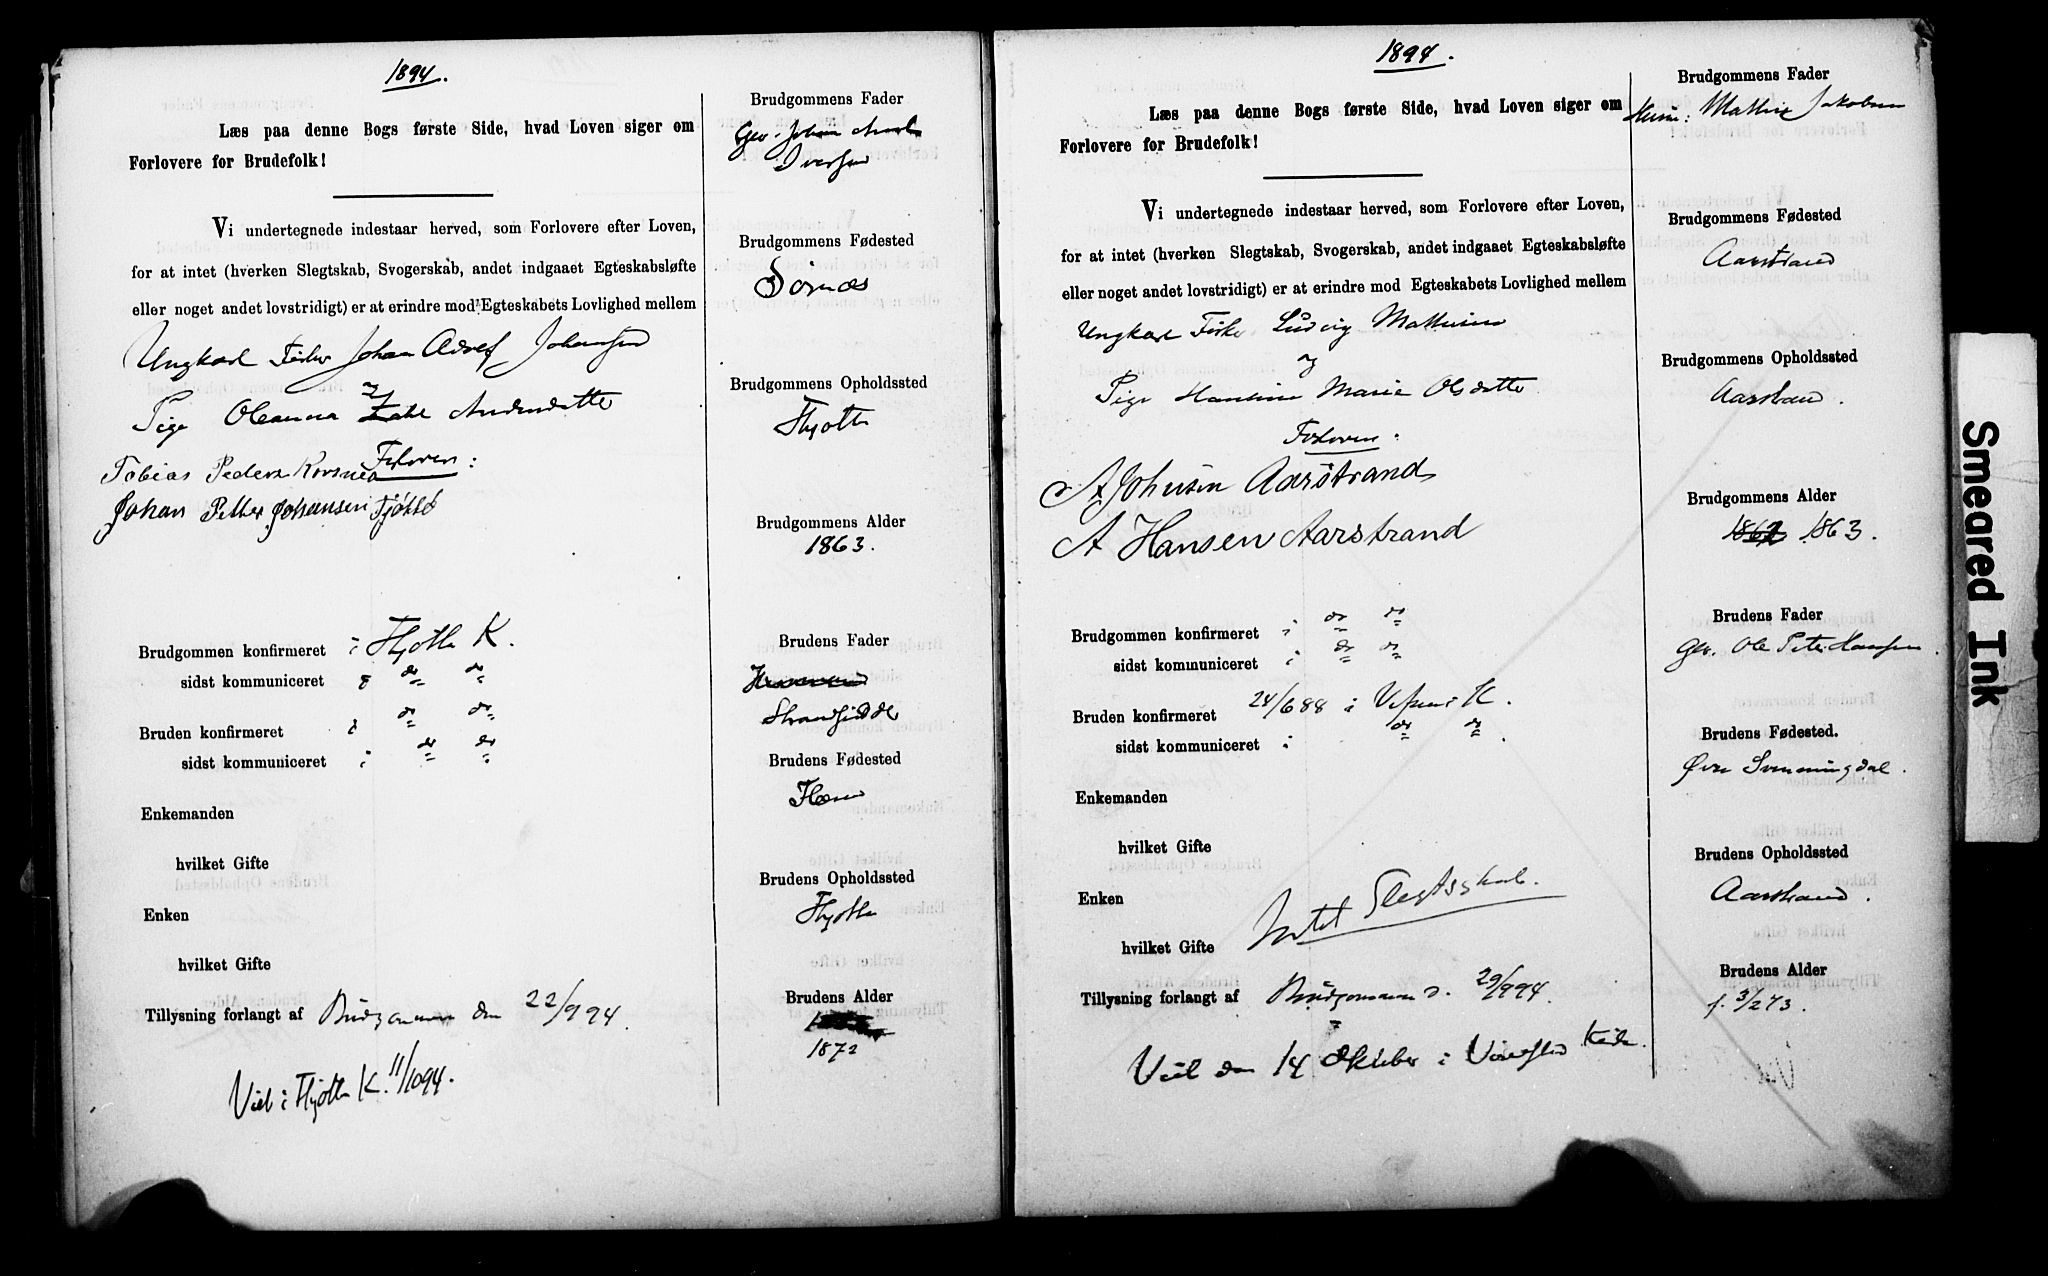 1894.
Læs paa denne Bogs første Side, hvad Loven siger om
Forlovere for Brudefolk!
Vi undertegnede indestaar herved, som Forlovere efter Loven,
for at intet (hverken Slegtskab, Svogerskab, andet indgaaet Egteskabsløfte
eller noget andet lovstridigt) er at erindre mod Egteskabets Lovlighed mellem
Ungkarl Fisker Johan Adolf Johansen
og
Pige Oleanna Andersdatter
Forlovere:
Tobias Peders Korsnes
Johan Petter Johansen Tjøtta
Brudgommen konfirmeret i Thjøtta K.
sidst kommuniceret do do
Bruden konfirmeret i do do
sidst kommuniceret i do do
Enkemanden
hvilket Gifte
Enken
hvilket Gifte
Tillysning forlangt af Brudgommen den 22/9 94.
Viet i Thjøtta K. 11/10 94.
Brudgommens Fader
Gbr. Johan
Iversen
Brudgommens Fødested
Sørnæs
Brudgommens Opholdssted
Thjøtta
Brudgommens Alder
1863.
Brudens Fader
Brudens Fødested
Brudens Opholdssted
Thjøtta
Brudens Alder
1872
1894.
Læs paa denne Bogs første Side, hvad Loven siger om
Forlovere for Brudefolk!
Vi undertegnede indestaar herved, som Forlovere efter Loven,
for at intet (hverken Slegtskab, Svogerskab, andet indgaaet Egteskabsløfte
eller noget andet lovstridigt) er at erindre mod Egteskabets Lovlighed mellem
Ungkarl Fisker Ludvig Mathisen
og
Pige Hansine Marie Olsdatter
Forlovere:
A Johnsen Aarstrand
A Hansen Aarstrand
Brudgommen konfirmeret i do do
sidst kommuniceret i do do
Bruden konfirmeret 24/6 88 i Vefsens K.
sidst kommuniceret i do do
Enkemanden
hvilket Gifte
Enken
hvilket Gifte
Intet Slegtsskab.
Tillysning forlangt af Brudgommen d. 29/9 94.
Viet den 14 Oktober i Kirke.
Brudgommens Fader
Husm: Mathias Jakobsen
Brudgommens Fødested
Aarstrand
Brudgommens Opholdssted
Aarstrand.
Brudgommens Alder
1862 1863.
Brudens Fader
Gbr. Ole Peter Hansen.
Brudens Fødested.
Øvre Svenningdal.
Brudens Opholdssted
Aarstrand.
Brudens Alder
f. 3/2 73.
Smeared Ink